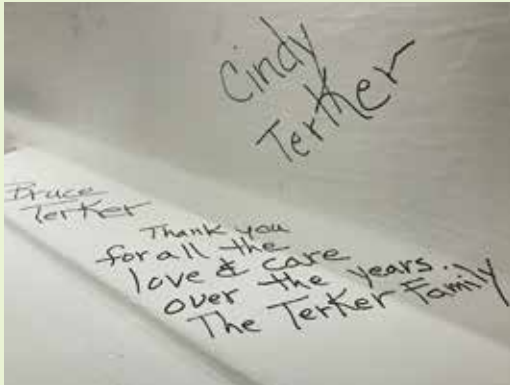 Cindy
Terker
Bruce
Terker
Thank you
for all the
love & care
over the years.
The Terker Family